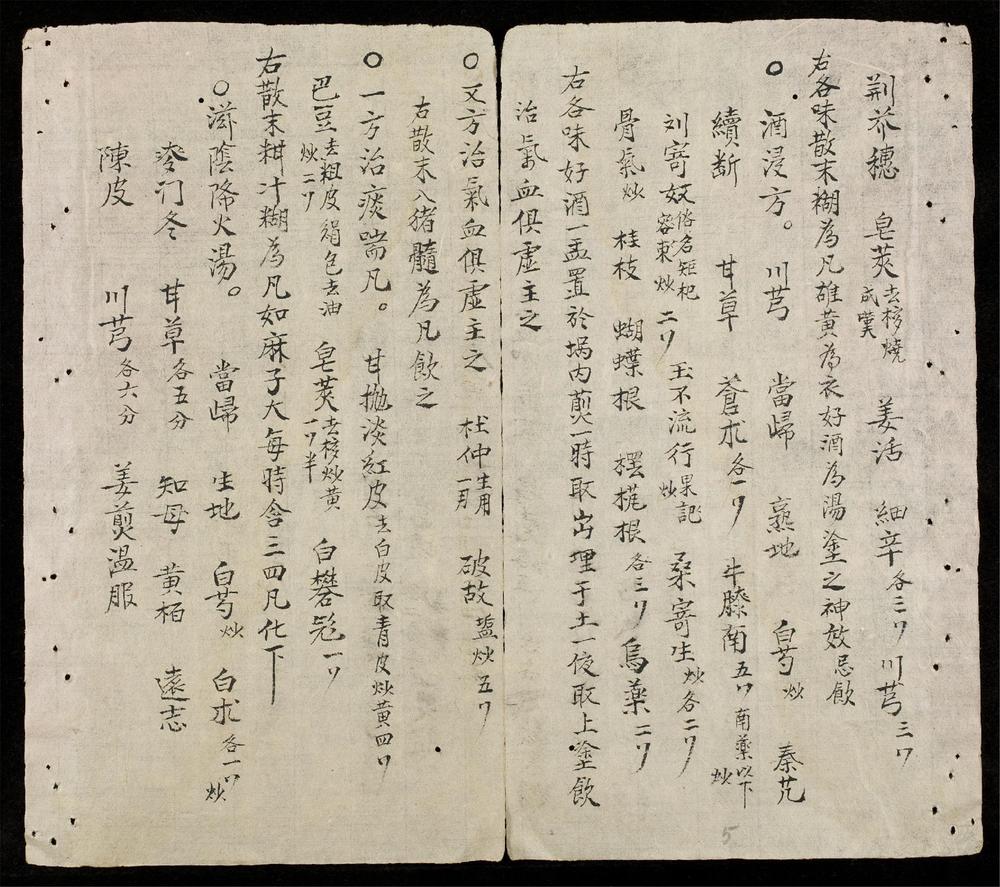 荆芥穗 皂莢去核燒成嘆 姜活 細辛各三リ 川芎三リ
右各味散末糊為凡雄黃為衣好酒為湯塗之神效忌飲
○酒浸方。 川芎 當歸 熟地 白芍炒 秦艽
續断 甘草 蒼朮各一リ 牛膝南五リ南藥以下炒
刘寄奴俗名矩杞容東炒二リ 王不流行果記炒 桑寄生炒各二リ
骨氣炒 桂枝 蝴蝶根 根各三リ 烏藥二リ
右各味好酒一盂置於堝内煎一時取出埋于土一夜取上塗飲
治氣血俱虛主之
○又方治氣血俱虛主之 杜仲生用一リ 破故盐炒五リ
右散末入猪髓為凡飲之
○一方治痰喘凡。 甘拋淡紅皮去白皮取青皮炒黃四リ
巴豆去粗皮絹包去油炒二リ 皂莢去核炒黃一リ半 白礬一リ
右散末耕汁糊為凡如麻子大每時含三四凡化下
○滋陰降火湯。 當歸 生地 白芍炒 白朮各一リ炒
麥门冬 甘草各五分 知母 黄栢 遠志
陳皮 川芎各六分 姜煎温服
5